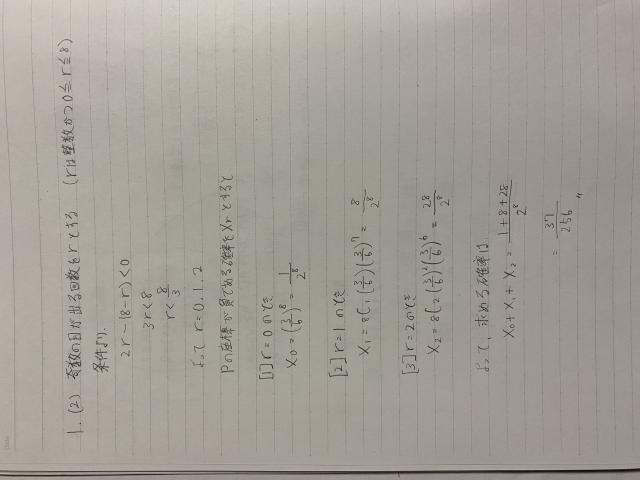 1. (2) 奇数の目が出る回数をrとする (rは整数かつ0≦r≦8)
条件より、
2r-(8-r)<0
3r<8
r<8/3
よって r=0.1.2
Pの座標が負である確率をXrとすると
[1] r=0のとき
X₀=(3/6)⁸=1/2⁸
[2] r=1のとき
X₁=₈C₁(3/6)(3/6)⁷=8/2⁸
[3] r=2のとき
X₂=₈C₂(3/6)²(3/6)⁶=28/2⁸
よって、求める確率は
X₀+X₁+X₂=1+8+28/2⁸
=37/256 〃